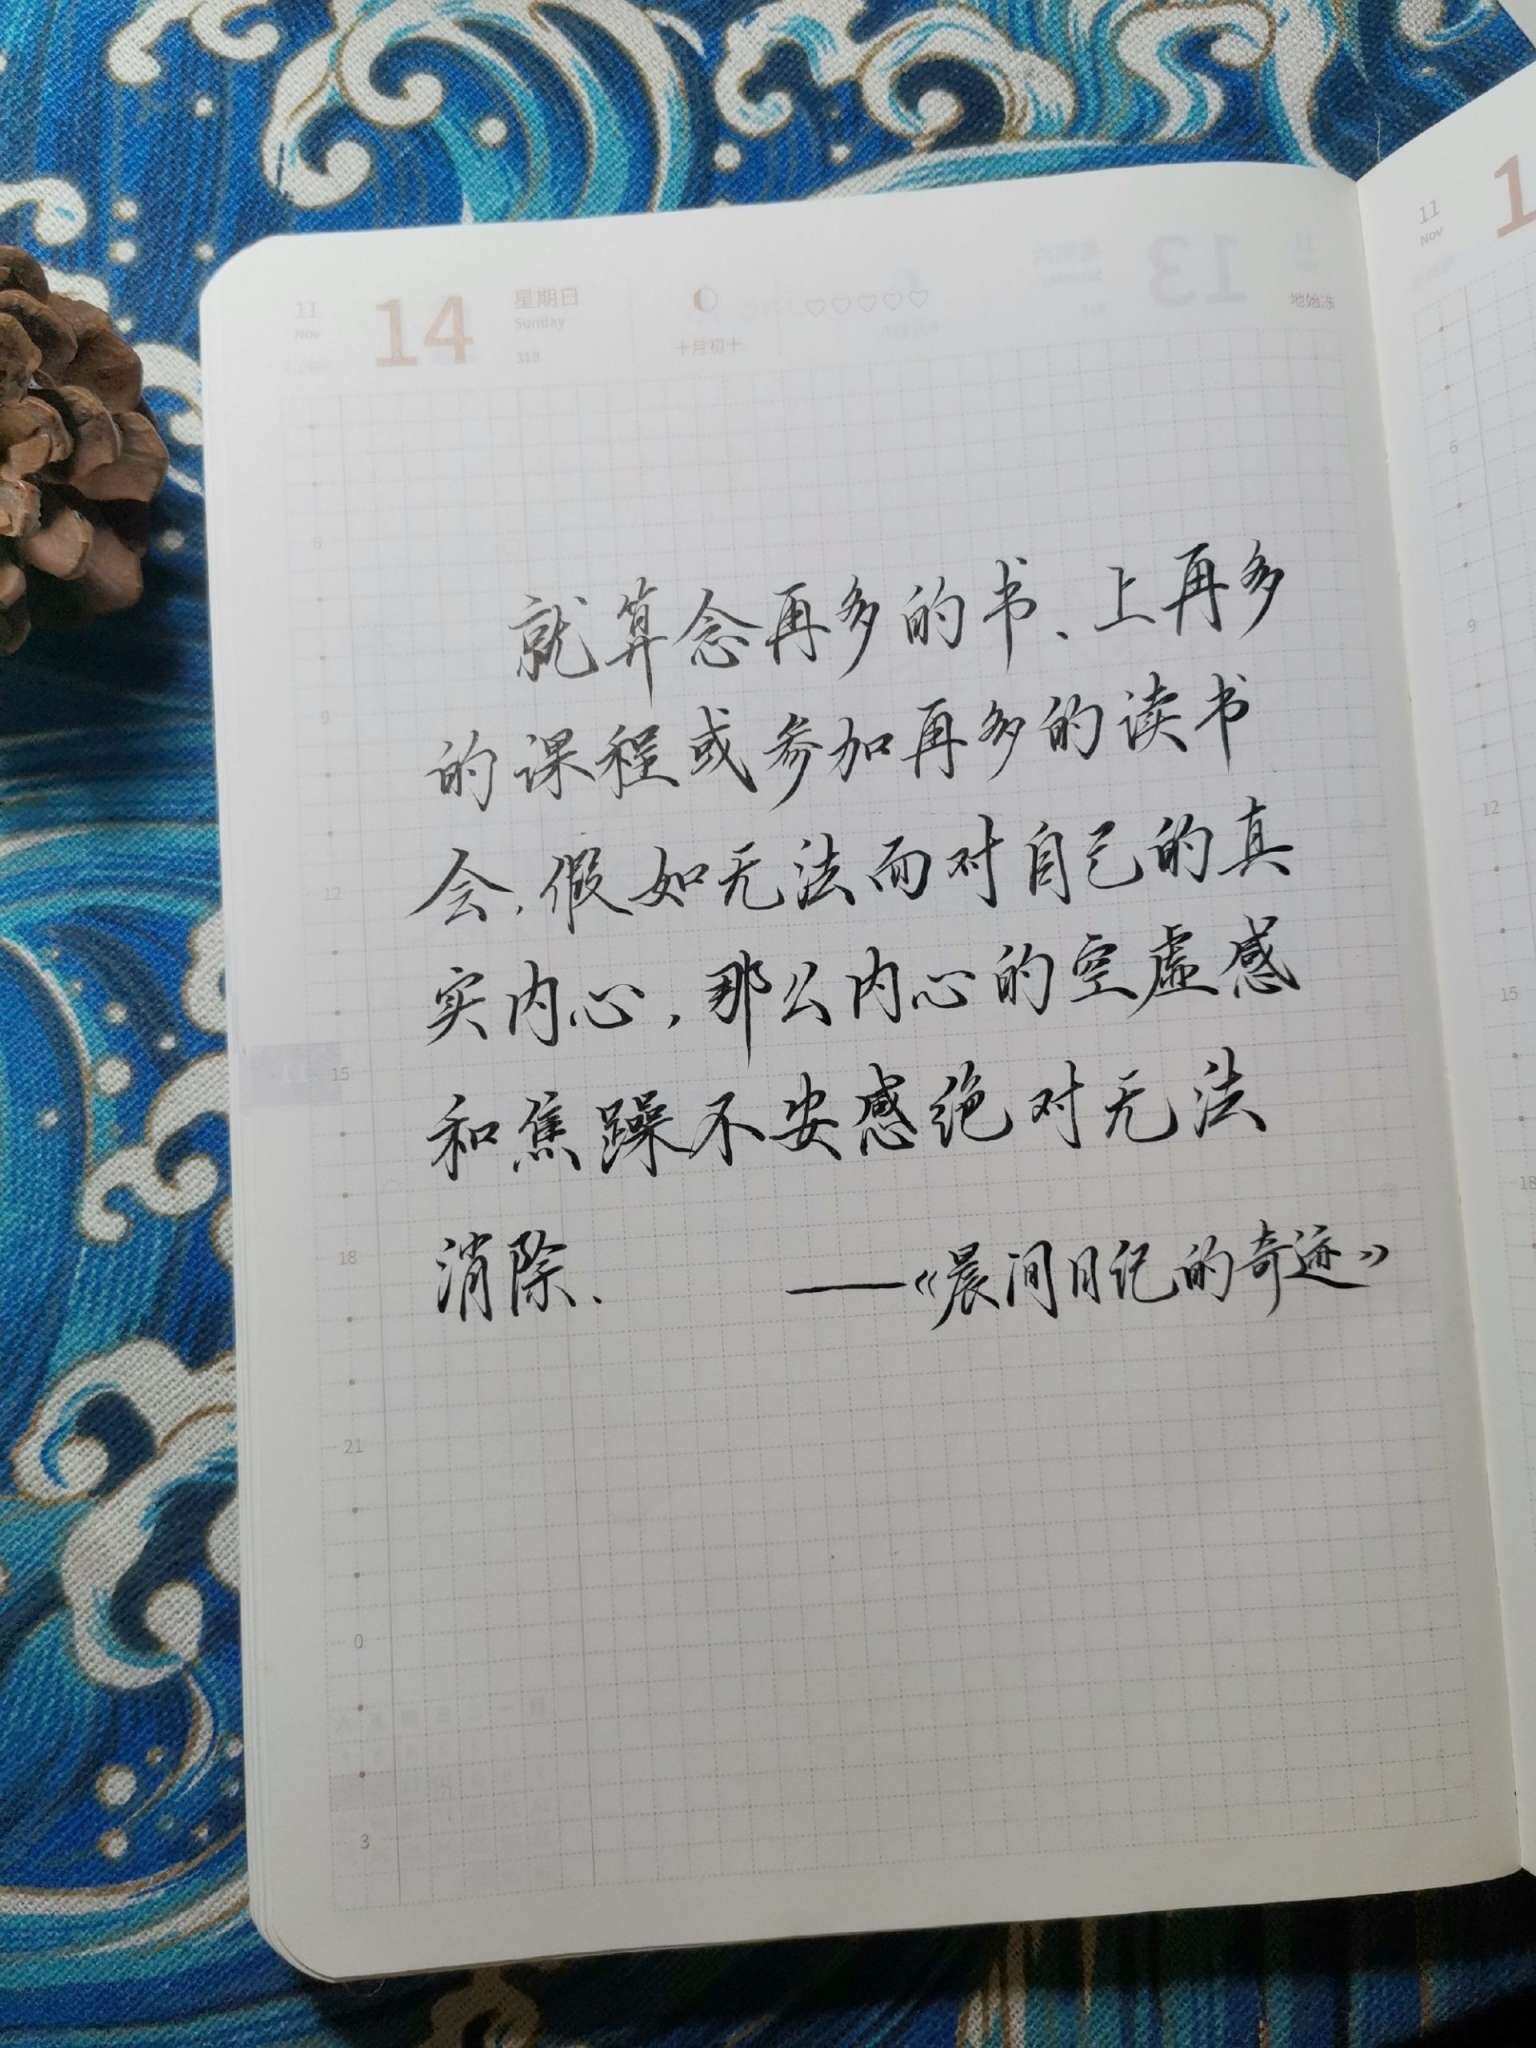 11 14 星期日
Nov Sunday
318 十月初十 地始冻
就算念再多的书、上再多
的课程或参加再多的读书
会,假如无法面对自己的真
实内心,那么内心的空虚感
和焦躁不安感绝对无法
消除.
——《晨间日记的奇迹》
6
9
12
15
18
21
0
3
11
Nov
6
9
12
15
18